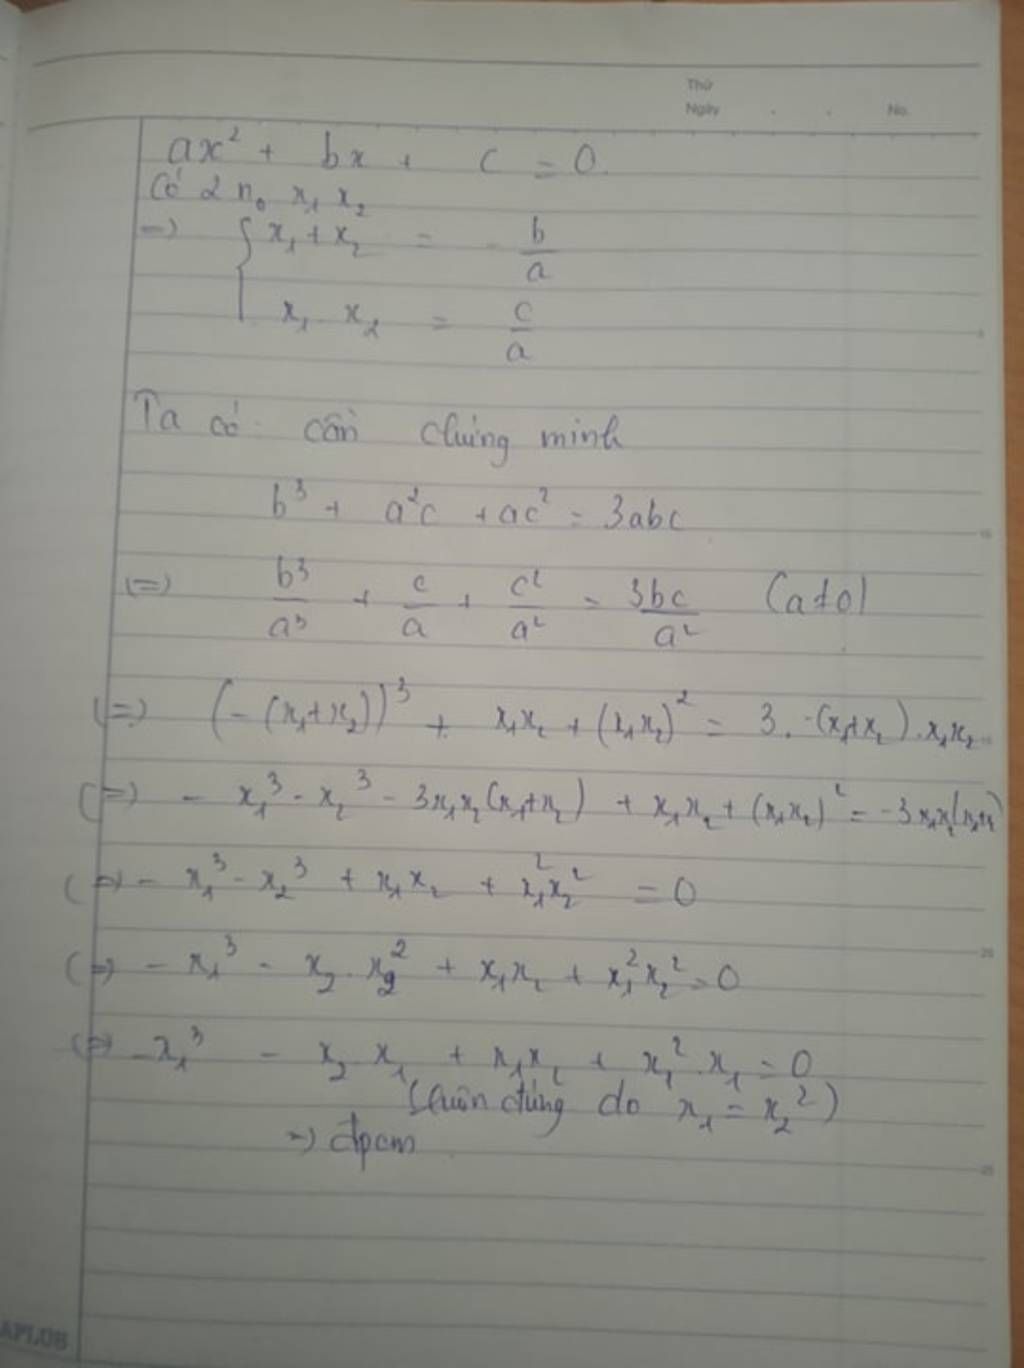 Thứ
Ngày . . No.
ax² + bx + c = 0.
Có 2 n₀ x₁ x₂
=> { x₁ + x₂ = - b/a
x₁ . x₂ = c/a
Ta có cần chứng minh
b³ + a²c + ac² = 3abc
(=) b³/a³ + c/a + c²/a² = 3bc/a² (a≠0)
(=) (-(x₁+x₂))³ + x₁x₂ + (x₁x₂)² = 3. -(x₁+x₂).x₁x₂
(=) - x₁³ - x₂³ - 3x₁x₂(x₁+x₂) + x₁x₂ + (x₁x₂)² = -3x₁x₂(x₁+x₂)
(=) - x₁³ - x₂³ + x₁x₂ + x₁²x₂² = 0
(=) - x₁³ - x₂.x₂² + x₁x₂ + x₁²x₂² = 0
(=) -x₁³ - x₂ x₁ + x₁x₂ + x₁².x₁ = 0
(luôn đúng do x₁ = x₂²)
=> đpcm